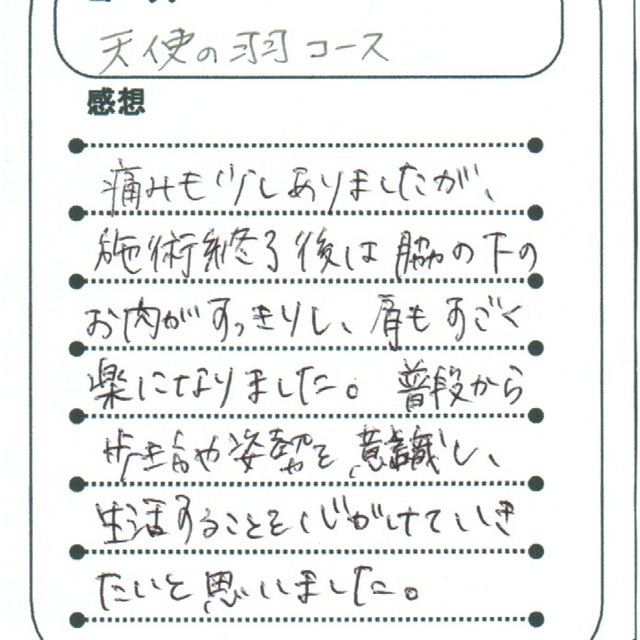 天使の羽コース
感想
痛みも少しありましたが、
施術終了後は脇の下の
お肉がすっきりし、肩もすごく
楽になりました。普段から
歩き方や姿勢を意識し、
生活することを心がけていき
たいと思いました。